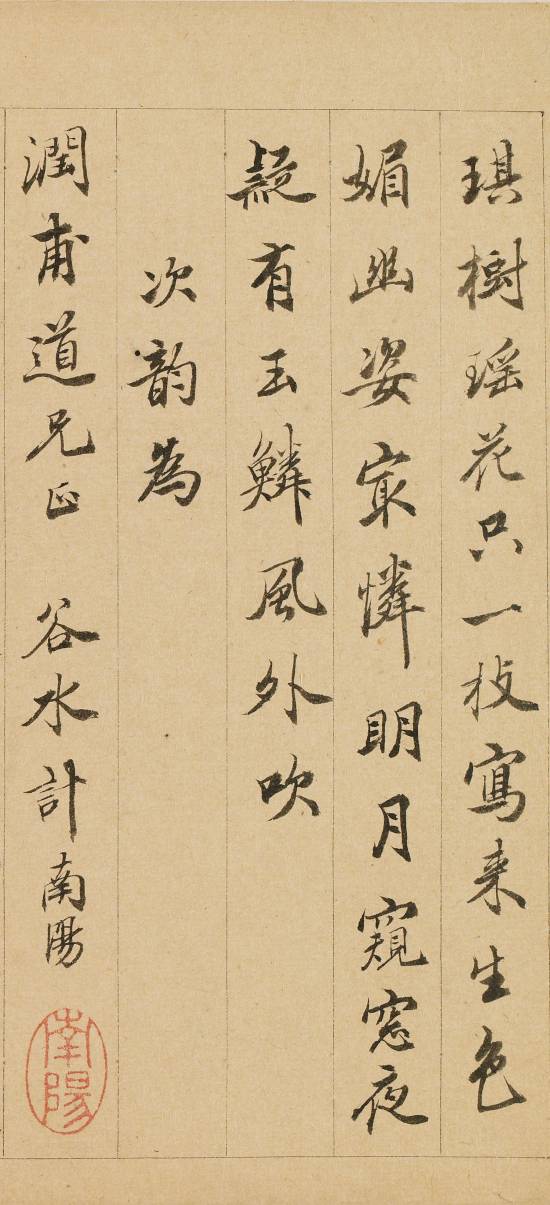 琪樹瑶花只一枝寫来生色
媚幽姿冣憐明月窺窓夜
疑有玉鱗風外吹
次韵為
潤甫道兄正 谷水計南陽
南陽